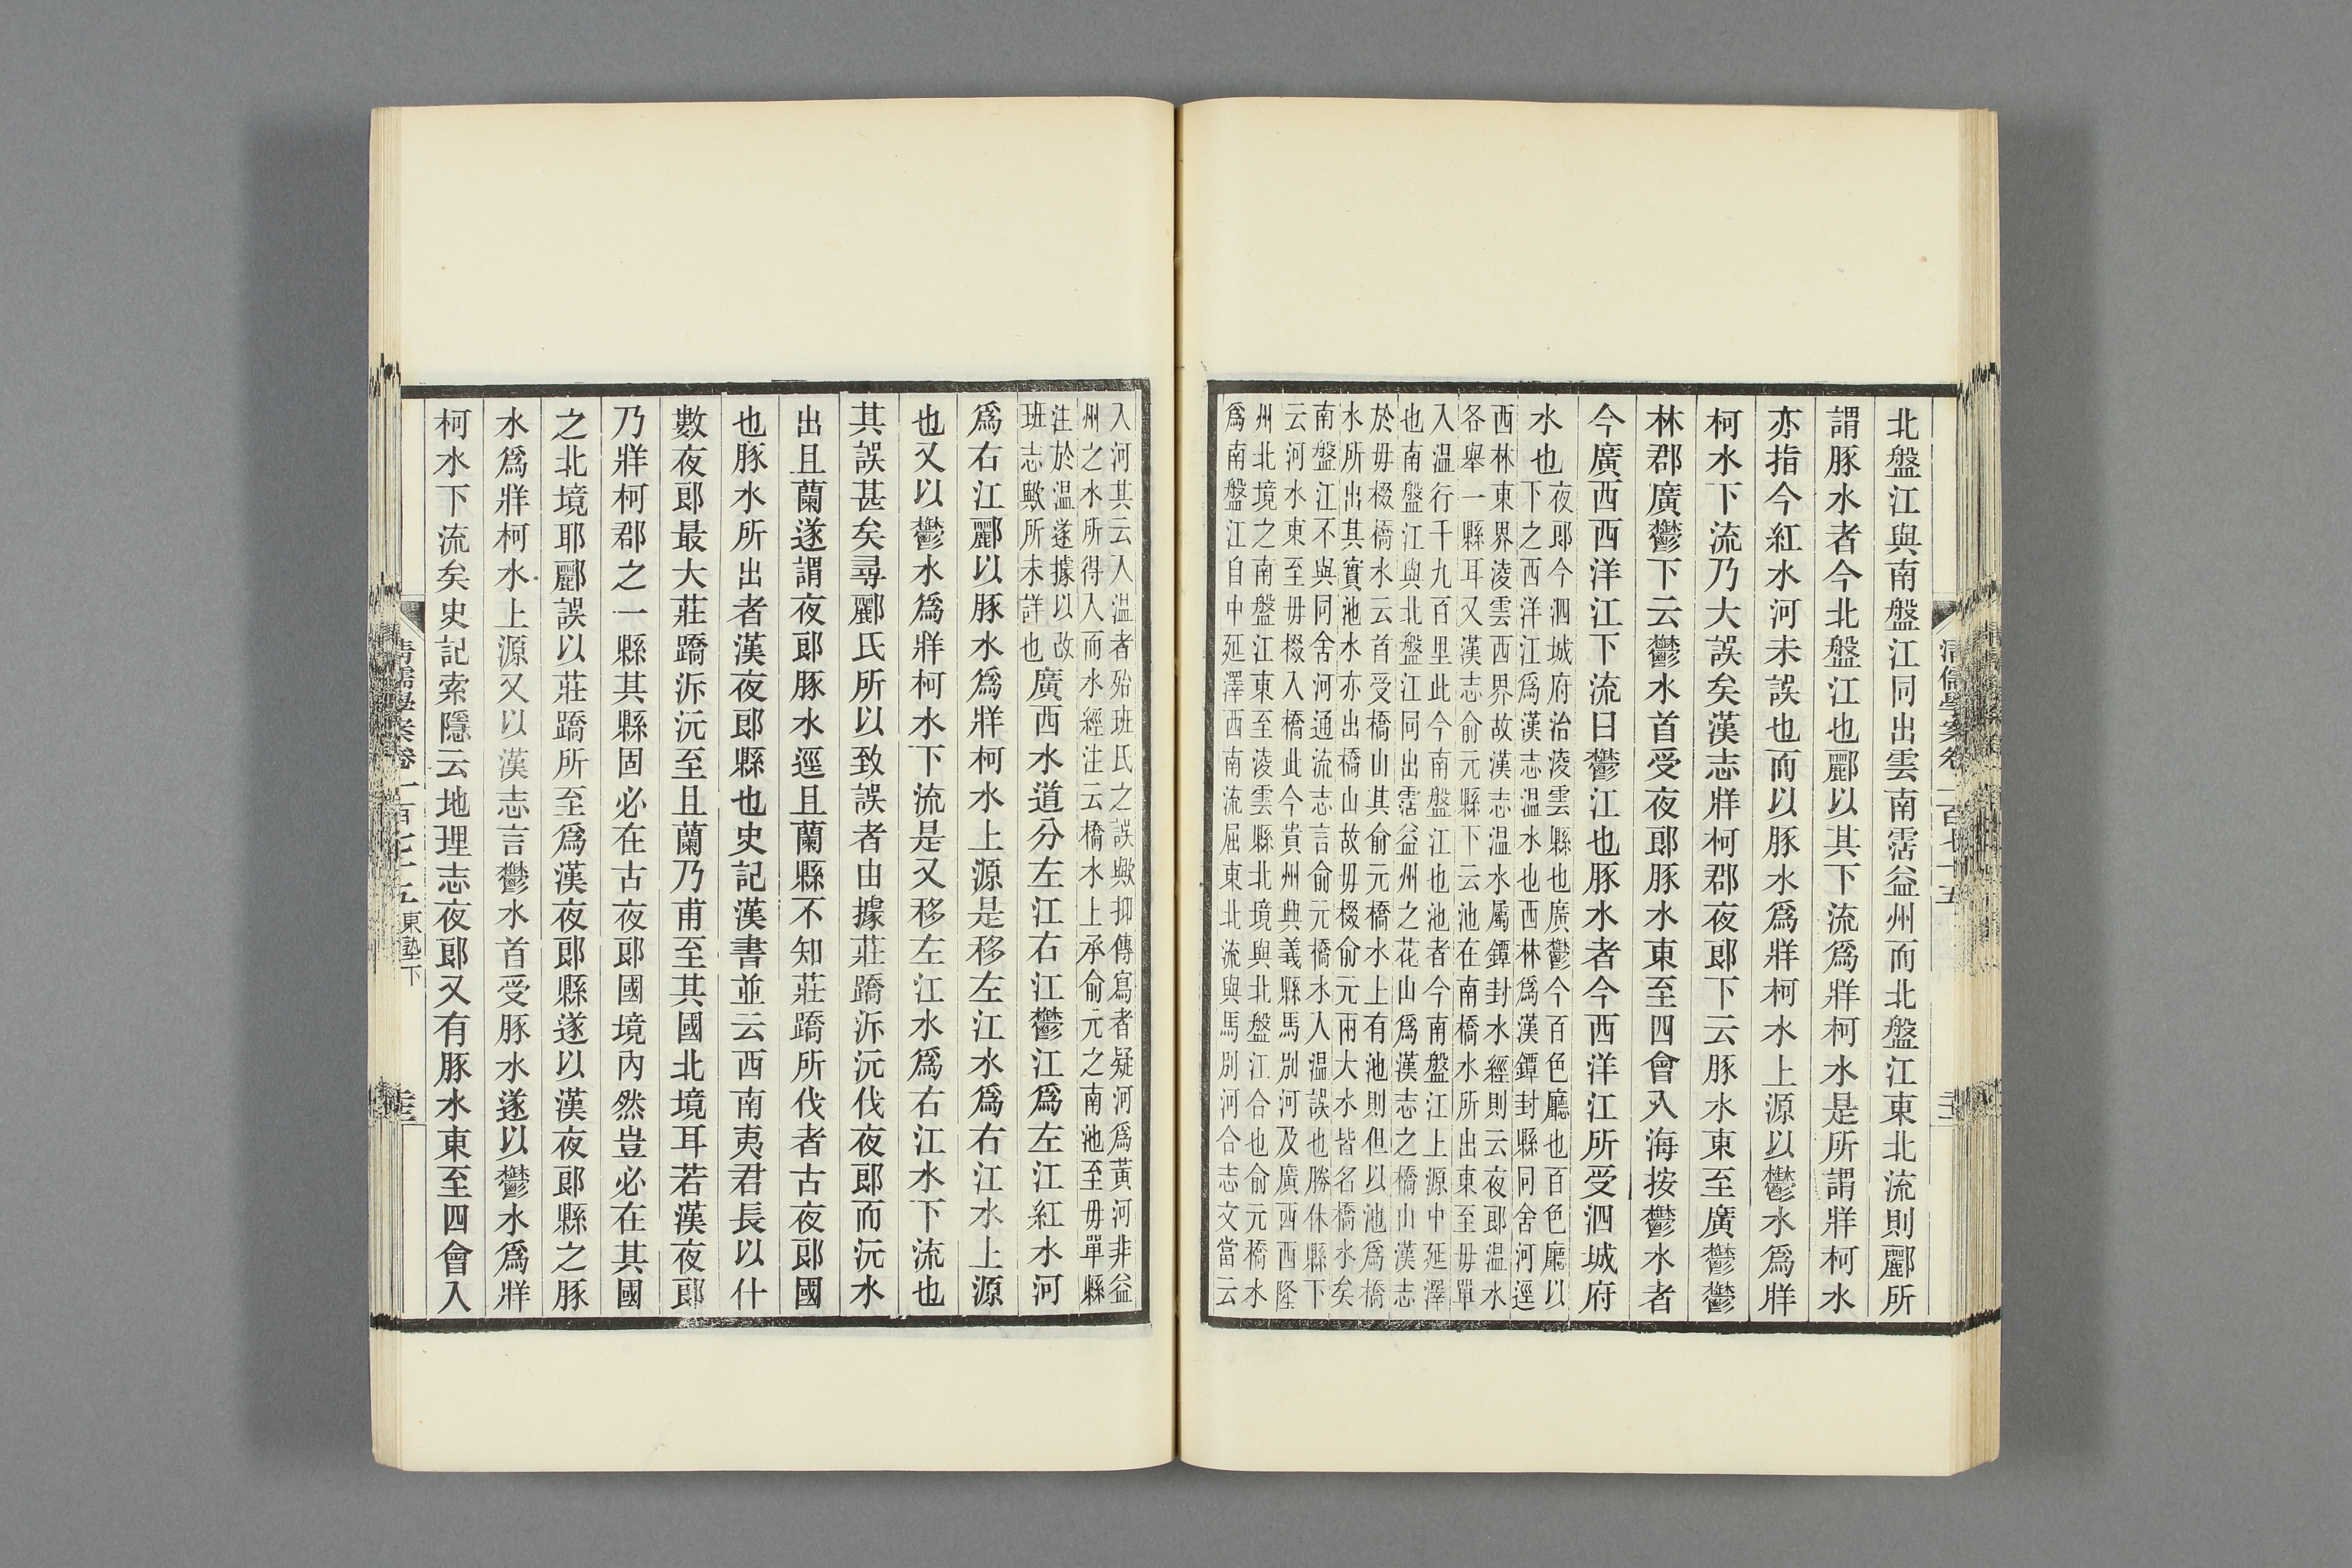 北盤江與南盤江同出雲南霑益州而北盤江東北流則酈所
謂豚水者今北盤江也酈以其下流爲牂柯水是所謂牂柯水
亦指今紅水河未誤也而以豚水爲牂柯水上源以鬱水爲牂
柯水下流乃大誤矣漢志牂柯郡夜郎下云豚水東至廣鬱鬱
林郡廣鬱下云鬱水首受夜郎豚水東至四會入海按鬱水者
今廣西西洋江下流曰鬱江也豚水者今西洋江所受泗城府
水也
夜郎今泗城府治淩雲縣也廣鬱今百色廳也百色廳以
下之西洋江爲漢志温水也西林爲漢鐔封縣同舍河逕
西林東界淩雲西界故漢志温水屬鐔封水經則云夜郎温水
各舉一縣耳又漢志俞元縣下云池在南橋水所出東至毋單
入温行千九百里此今南盤江也池者今南盤江上源中延澤
也南盤江與北盤江同出霑益州之花山爲漢志之橋山漢志
於毋棳橋水云首受橋山其俞元橋水上有池則但以池爲橋
水所出其實池水亦出橋山故毋棳俞元兩大水皆名橋水矣
南盤江不與同舍河通流志言俞元橋水入温誤也勝休縣下
云河水東至毋棳入橋此今貴州興義縣馬別河及廣西西隆
州北境之南盤江東至淩雲縣北境與北盤江合也俞元橋水
爲南盤江自中延澤西南流屈東北流與馬別河合志文當云
入河其云入温者殆班氏之誤歟抑傳寫者疑河爲黃河非益
州之水所得入而水經注云橋水上承俞元之南池至毋單縣
注於温遂據以改
班志歟所未詳也
廣西水道分左江右江鬱江爲左江紅水河
爲右江酈以豚水爲牂柯水上源是移左江水爲右江水上源
也又以鬱水爲牂柯水下流是又移左江水爲右江水下流也
其誤甚矣尋酈氏所以致誤者由據莊蹻泝沅伐夜郎而沅水
出且蘭遂謂夜郎豚水逕且蘭縣不知莊蹻所伐者古夜郎國
也豚水所出者漢夜郎縣也史記漢書並云西南夷君長以什
數夜郎最大莊蹻泝沅至且蘭乃甫至其國北境耳若漢夜郎
乃牂柯郡之一縣其縣固必在古夜郎國境內然豈必在其國
之北境耶酈誤以莊蹻所至爲漢夜郎縣遂以漢夜郎縣之豚
水爲牂柯水上源又以漢志言鬱水首受豚水遂以鬱水爲牂
柯水下流矣史記索隱云地理志夜郎又有豚水東至四會入
清儒學案卷一百七十五 東塾下